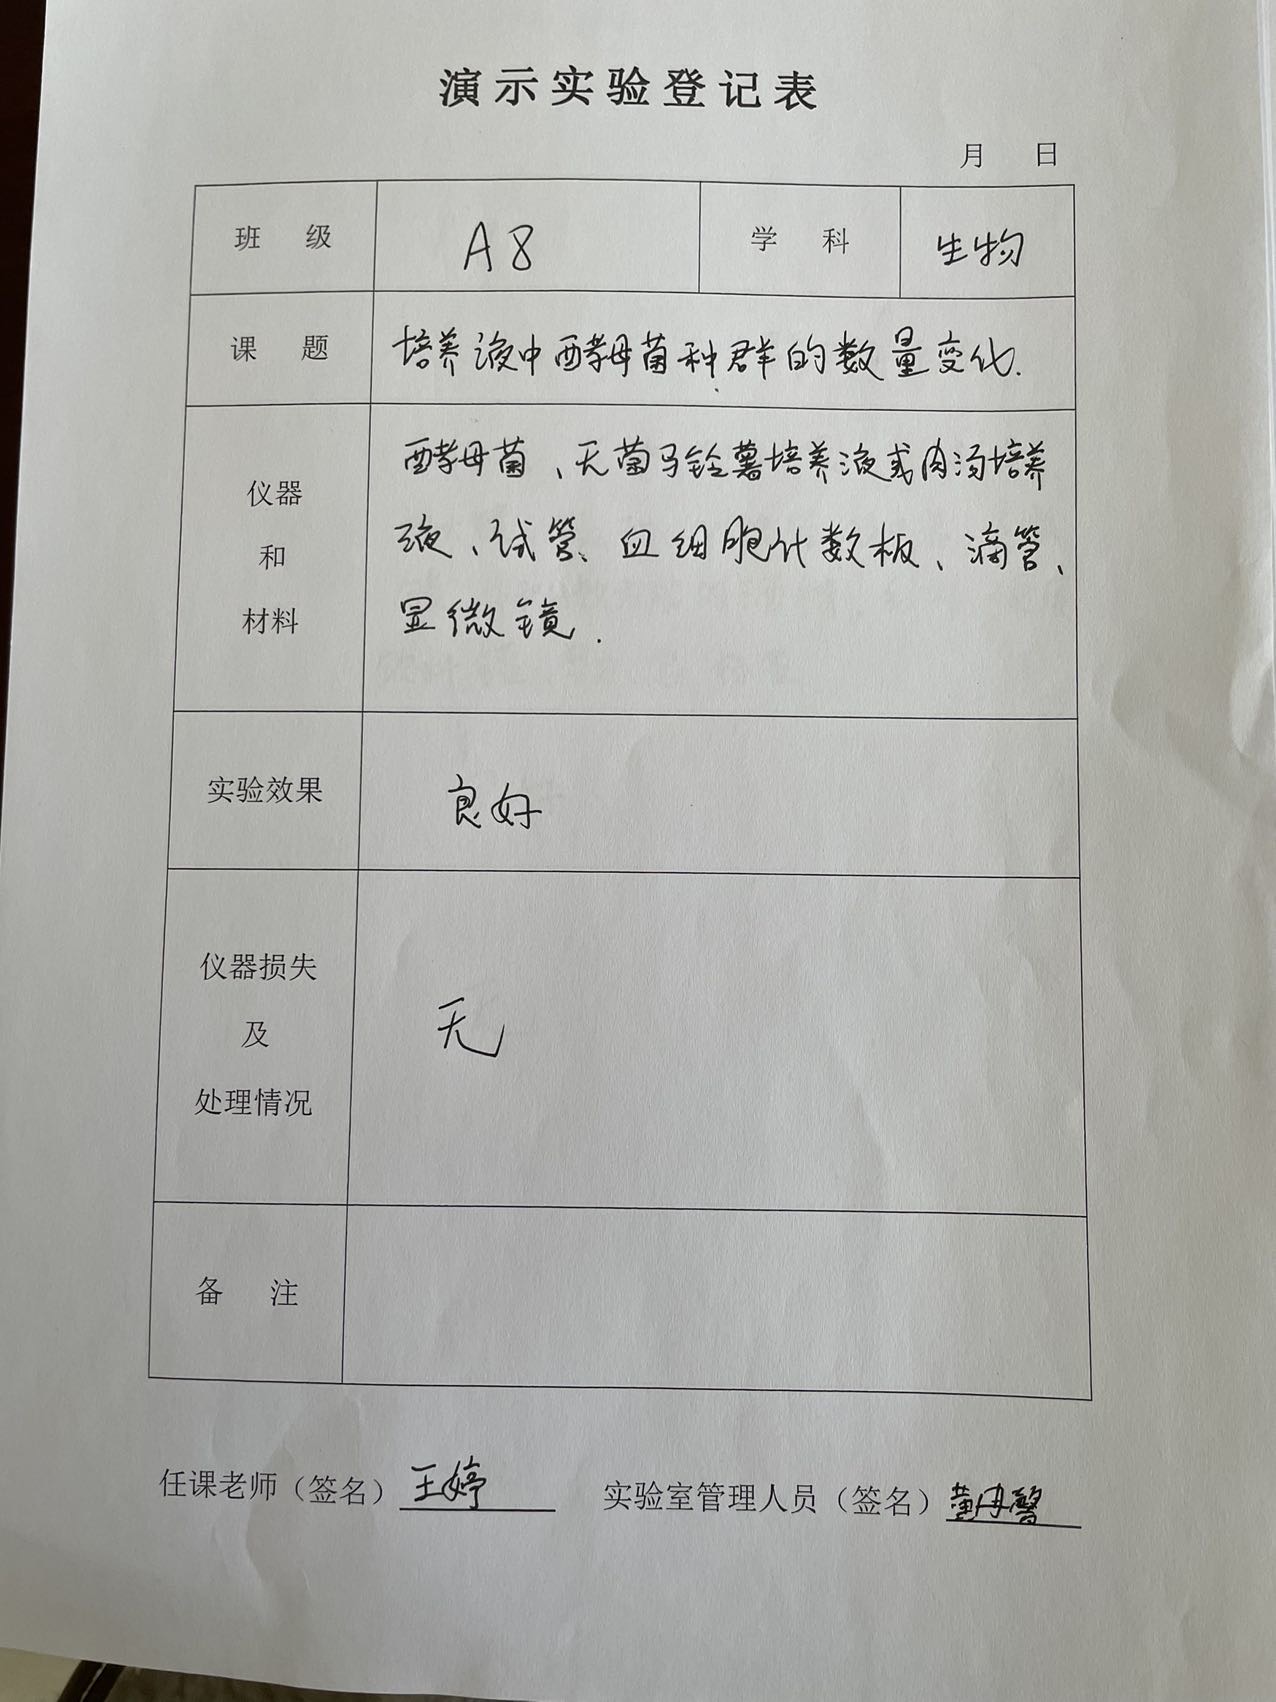 演示实验登记表
月 日
班 级 A8 学 科 生物
课 题 培养液中酵母菌种群的数量变化.
仪器
和
材料
酵母菌、无菌马铃薯培养液或肉汤培养
液、试管、血细胞计数板、滴管、
显微镜.
实验效果 良好
仪器损失
及
处理情况
无
备 注
任课老师（签名）王婷 实验室管理人员（签名）董丹馨